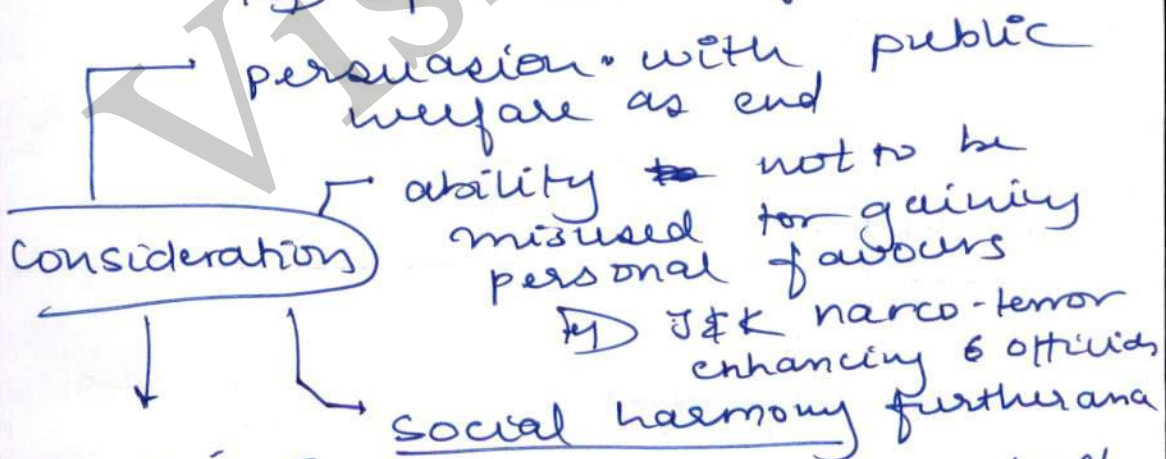 persuasion with public
welfare as end
ability not to be
misused for gaining
personal favours
Consideration
J&K narco-terror
enhancing 6 officials
social harmony furtherance